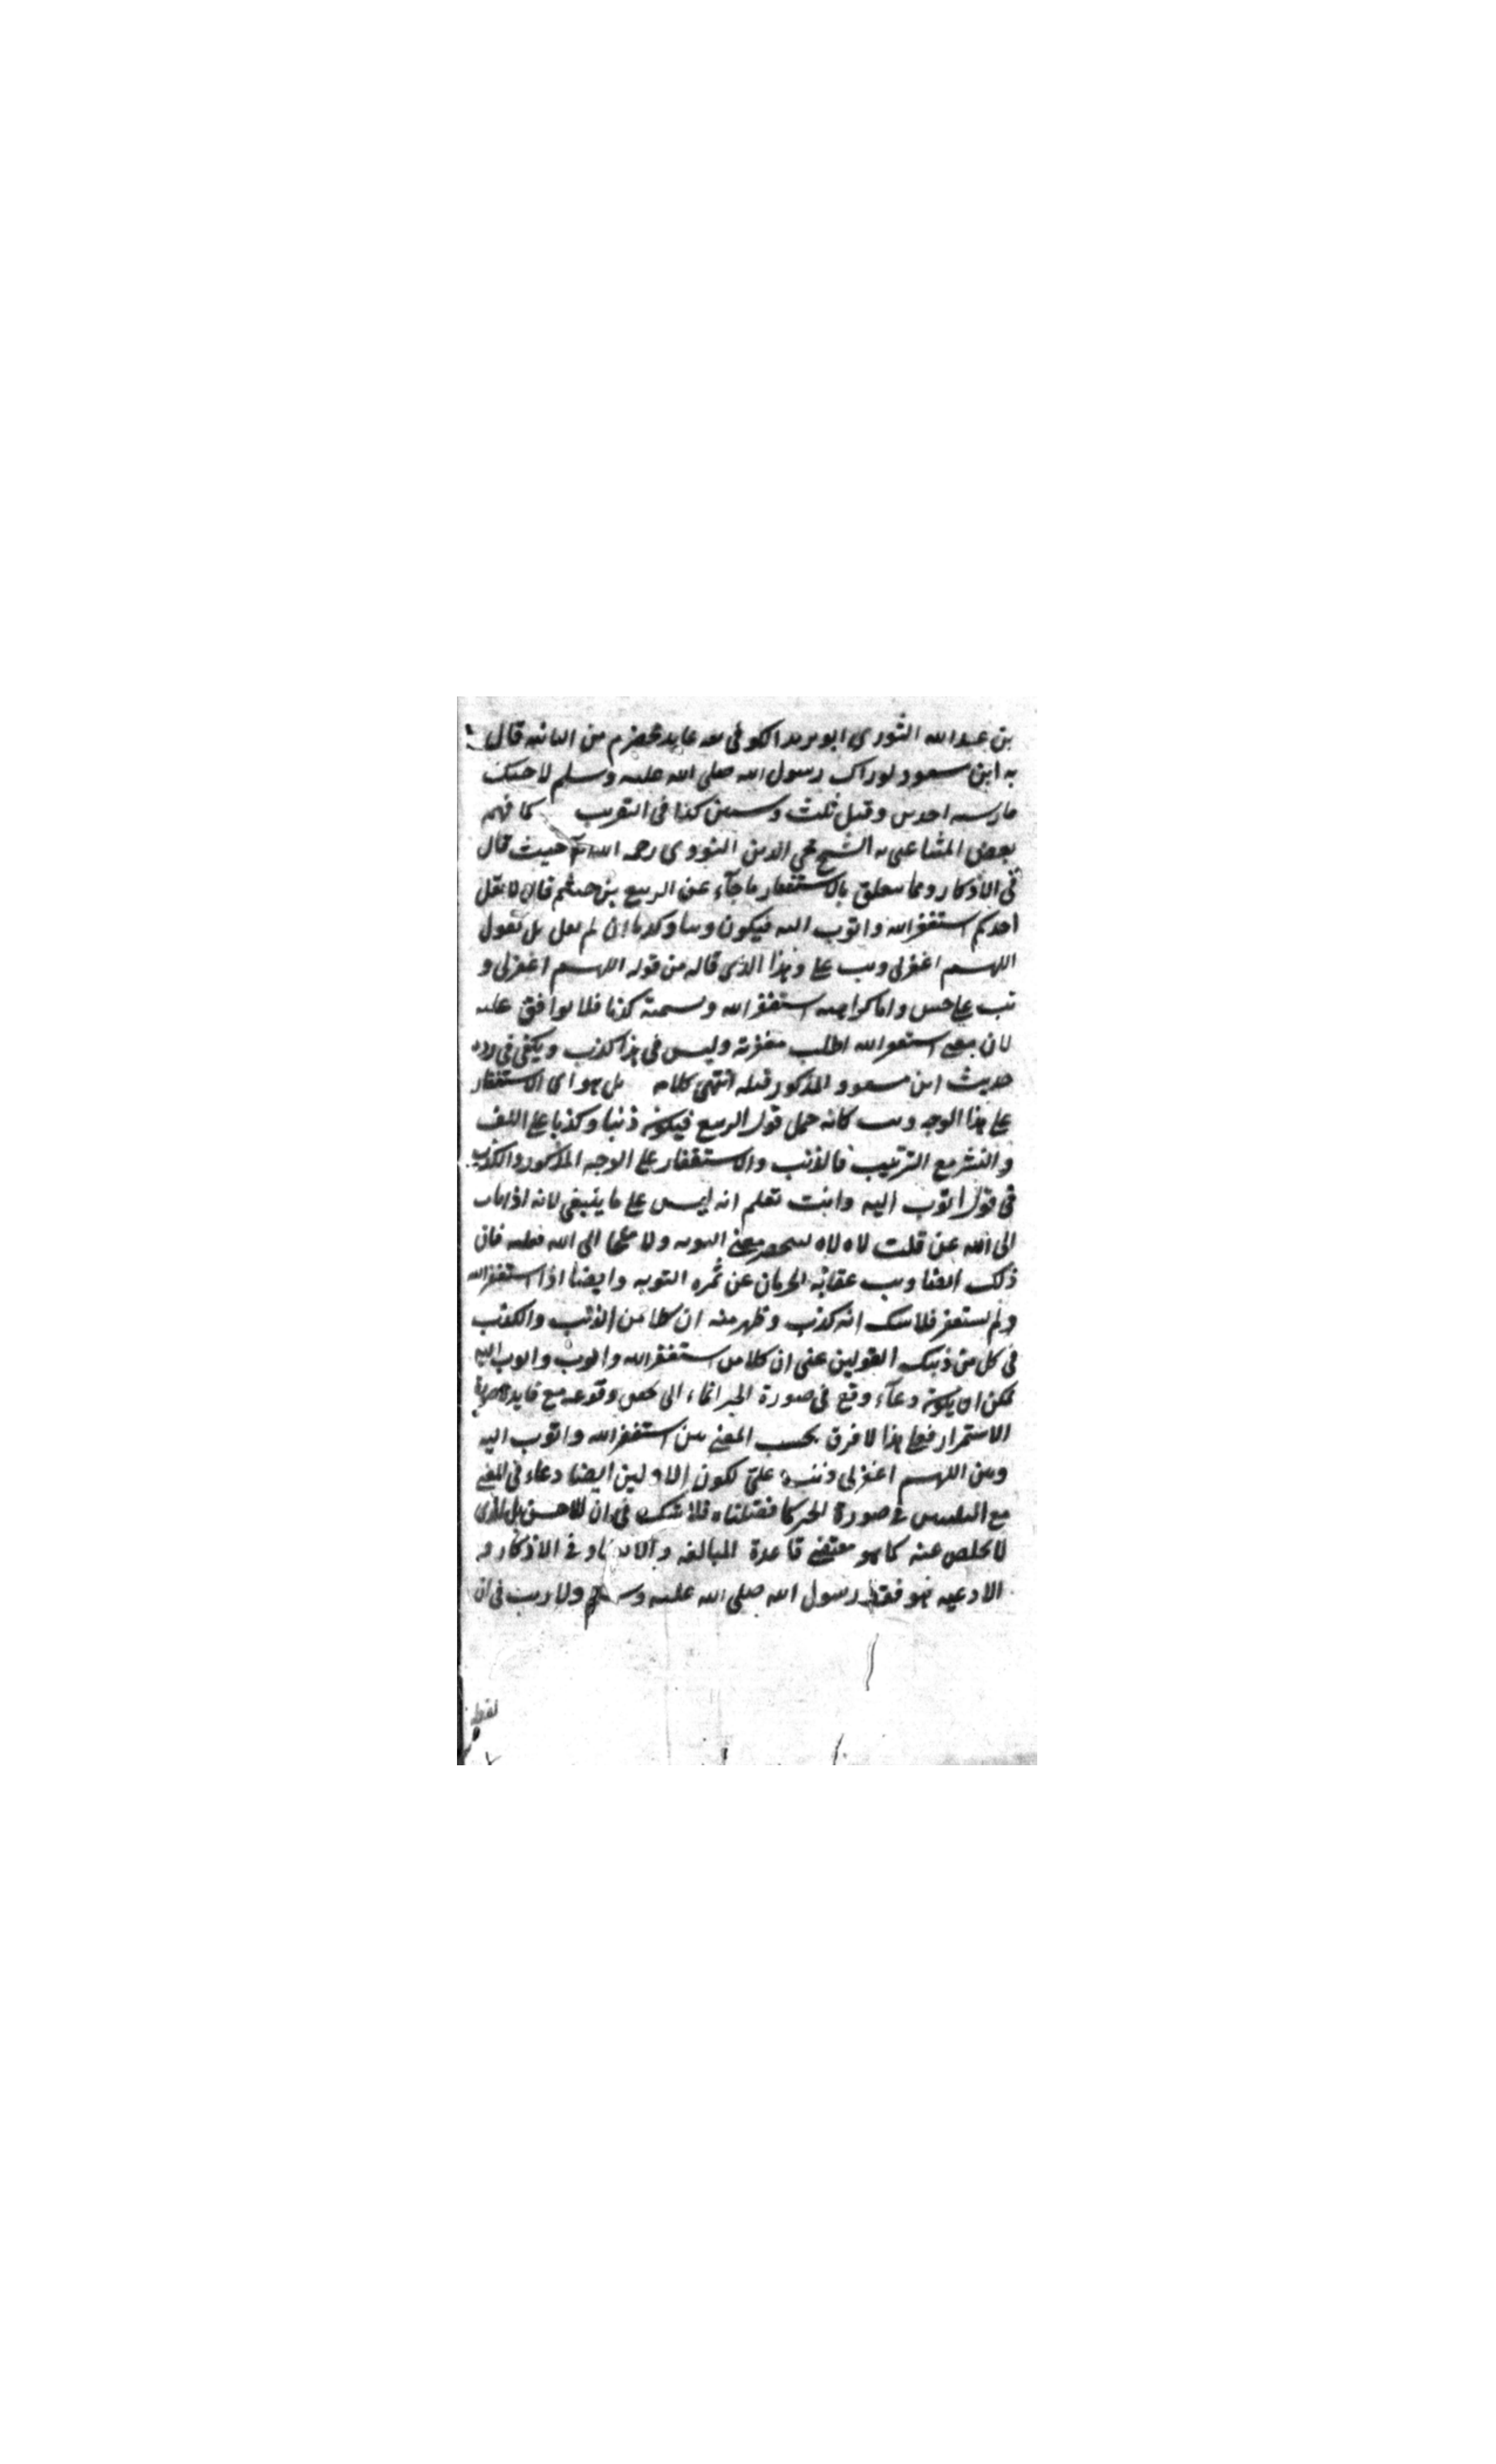 بن عبد الله الثوري ابو يزيد الكوفي ثقه عابد مخضرم من الثانيه قال
به ابن مسعود لو راك رسول الله صلى الله عليه وسلم لاحبك
مات سنه احدى وقيل ثلث وستين كذا في التقريب كما فهمه
بعض المشا الشيخ محي الدين النووي رحمه الله حيث قال
في الاذكار ومما يتعلق بالاستغفار ما جآء عن الربيع بن خثيم قال لا يقل
احدكم استغفر الله واتوب اليه فيكون ذنبا وكذبا ان لم يفعل بل يقول
اللهم اغفر لي وتب علي وهذا الذي قاله من قوله اللهم اغفر لي و
تب علي حسن واما كراهيه استغفر الله وتسمية كذبا فلا يوافق عليه
لان معنى استغفر الله اطلب مغفرته وليس في هذا كذب ويكفي في رده
حديث ابن مسعود المذكور قبله انتهى كلامه بل هو اي الاستغفار
على هذا الوجه ذنب كانه حمل قول الربيع فيكون ذنبا وكذبا على اللف
والنشر مع الترتيب فالذنب والاستغفار على الوجه المذكور والكذب
في قول اتوب اليه وانت تعلم انه ليس على ما ينبغي لانه اذا تاب
الى الله عن قلب لاه لا يستحضر معنى التوبه ولا ملتجا الى الله بقلبه فان
ذلك ايضا ذنب عقابه الحرمان عن ثمره التوبه وايضا اذا استغفر الله
ولم يستغفر فلا شك انه كذب وظهر منه ان كلا من الذنب والكذب
في كل من ذينك القولين عنى ان كلا من استغفر الله واتوب واتوب اليه
يمكن ان يكون دعآء وقع في صورة الخبر الى وقوعه مع فايدة
الاستمرار فعلى هذا لا فرق بحسب المعنى بين استغفر الله واتوب اليه
وبين اللهم اغفر لي وتب علي لكون الاولين ايضا دعاء في المعنى
مع التلبس في صورة الخبر كما فصلناه فلا شك في ان الاحسن بل الذي
لا يخلص عنه كما هو مقتضى قاعدة المبالغه في الاذكار و
الادعيه هو رسول الله صلى الله عليه وسلم ولا ريب في ان